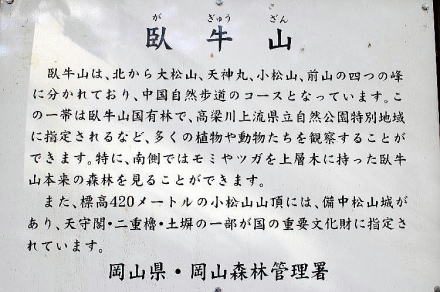 が ぎゅう ざん
臥 牛 山
臥牛山は、北から大松山、天神丸、小松山、前山の四つの峰
に分かれており、中国自然歩道のコースとなっています。こ
の一帯は臥牛山国有林で、高梁川上流県立自然公園特別地域
に指定されるなど、多くの植物や動物たちを観察することが
できます。特に、南側ではモミやツガを上層木に持った臥牛
山本来の森林を見ることができます。
また、標高420メートルの小松山山頂には、備中松山城が
あり、天守閣・二重櫓・土塀の一部が国の重要文化財に指定さ
れています。
岡山県・岡山森林管理署